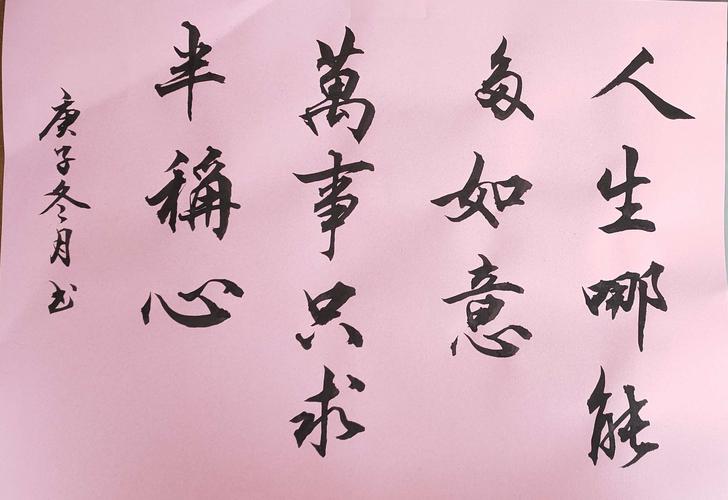 人生哪能
多如意
萬事只求
半稱心
庚子冬月书